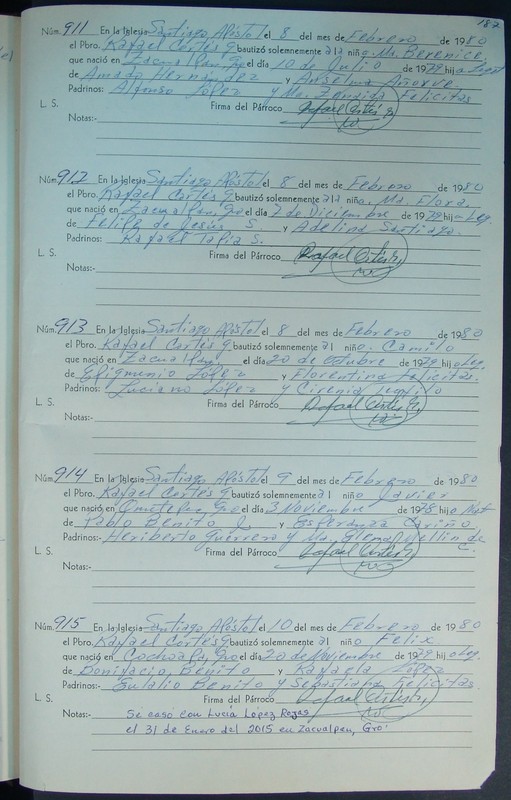 182
Núm. 911 En la Iglesia Santiago Apóstol el 8 del mes de Febrero de 1980
el Pbro. Rafael Cortés G bautizó solemnemente a la niña Ma. Berenice
que nació en Zacualpan, Gro el día 10 de Julio de 1979 hija Legt
de Amado Hernández y Anselma Añorve.
Padrinos: Alfonso López y Ma. Zenaida Felicitas
L. S. Firma del Párroco Rafael Cortés G.
Notas:-
Núm. 912 En la Iglesia Santiago Apóstol el 8 del mes de Febrero de 1980
el Pbro. Rafael Cortés G bautizó solemnemente a la niña Ma. Flora.
que nació en Zacualpan, Gro el día 7 de Diciembre de 1979 hija Leg.
de Felipe de Jesús S. y Adelina Santiago.
Padrinos: Rafael Tapia S.
L. S. Firma del Párroco Rafael Cortés G.
Notas:-
Núm. 913 En la Iglesia Santiago Apóstol el 8 del mes de Febrero de 1980
el Pbro. Rafael Cortés G bautizó solemnemente al niño Camilo
que nació en Zacualpan el día 20 de Octubre de 1979 hijo Leg.
de Epigmenio López y Florentina Felicitas.
Padrinos: Luciano López y Cirenia
L. S. Firma del Párroco Rafael Cortés G.
Notas:-
Núm. 914 En la Iglesia Santiago Apóstol el 9 del mes de Febrero de 1980
el Pbro. Rafael Cortés G bautizó solemnemente al niño Javier
que nació en Ometepec, Gro el día 3 Noviembre de 1978 hijo Nat
de Pablo Benito L y Esperanza Cariño.
Padrinos:- Heriberto Guerrero y Ma. Guillén de C.
L. S. Firma del Párroco Rafael Cortés G.
Notas:-
Núm. 915 En la Iglesia Santiago Apóstol el 10 del mes de Febrero de 1980
el Pbro. Rafael Cortés G bautizó solemnemente al niño Felix
que nació en Cochoapa, Gro el día 20 de Noviembre de 1979 hijo Leg.
de Bonifacio Benito y Rafaela López
Padrinos:- Eulalio Benito y Sebastiana Felicitas
L. S. Firma del Párroco Rafael Cortés G.
Notas:- Se caso con Lucía López Rojas
el 31 de Enero del 2015 en Zacualpan, Gro.